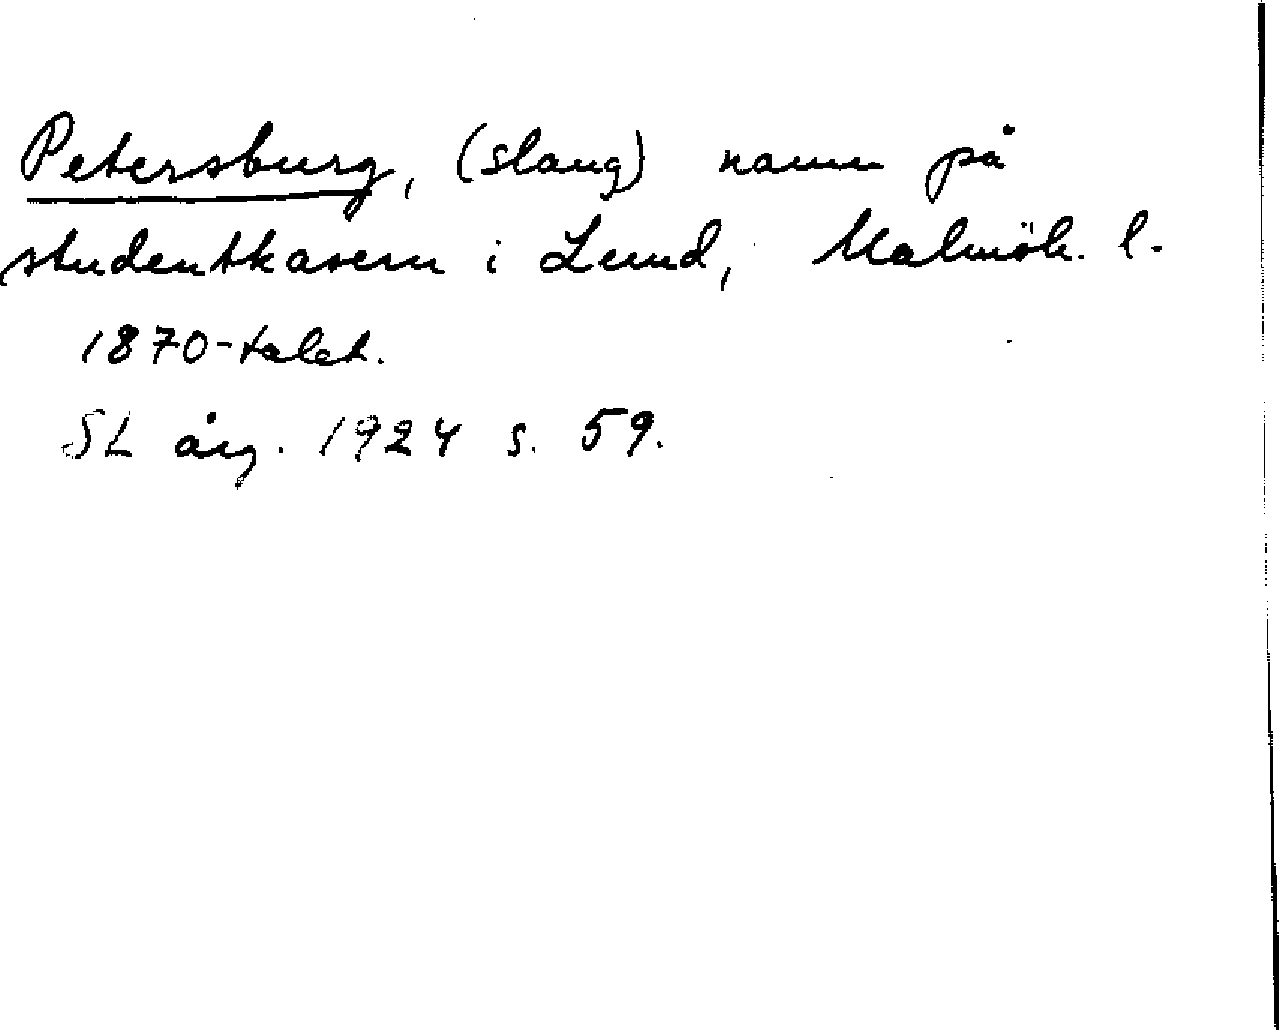 Petersburg, (slang) namn på
studentkasern i Lund, Malmöh. l.
1870-talet.
SL årg. 1924 s. 59.